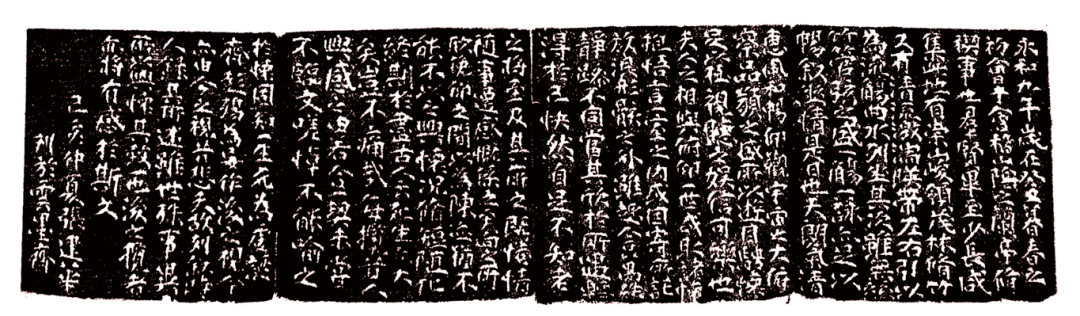 永和九年歲在癸丑暮春之
初會于會稽山陰之蘭亭脩
禊事也群賢畢至少長咸
集此地有崇山峻領茂林脩竹
又有清流激湍映帶左右引以
為流觴曲水列坐其次雖無絲
竹管弦之盛一觴一詠足以
暢敘幽情是日也天朗氣清
惠風和暢仰觀宇宙之大俯
察品類之盛所以遊目騁懷
足以極視聽之娛信可樂也
夫人之相與俯仰一世或取諸懷
抱悟言一室之內或因寄所託
放浪形骸之外雖趣舍萬殊
靜躁不同當其欣於所遇暫
得於己快然自足不知老
之將至及其所之既惓情
隨事遷感慨係之矣向之所
欣俛仰之間以為陳迹猶不
能不以之興懷況脩短隨化
終期於盡古人云死生亦大
矣豈不痛哉每攬昔人
興感之由若合一契未嘗
不臨文嗟悼不能喻之
於懷固知一死生為虛誕
齊彭殤為妄作後之視今
亦由今之視昔悲夫故列敘時
人錄其所述雖世殊事異
所以興懷其致一也後之攬者
亦將有感於斯文
己亥仲夏張運華
刊於雲